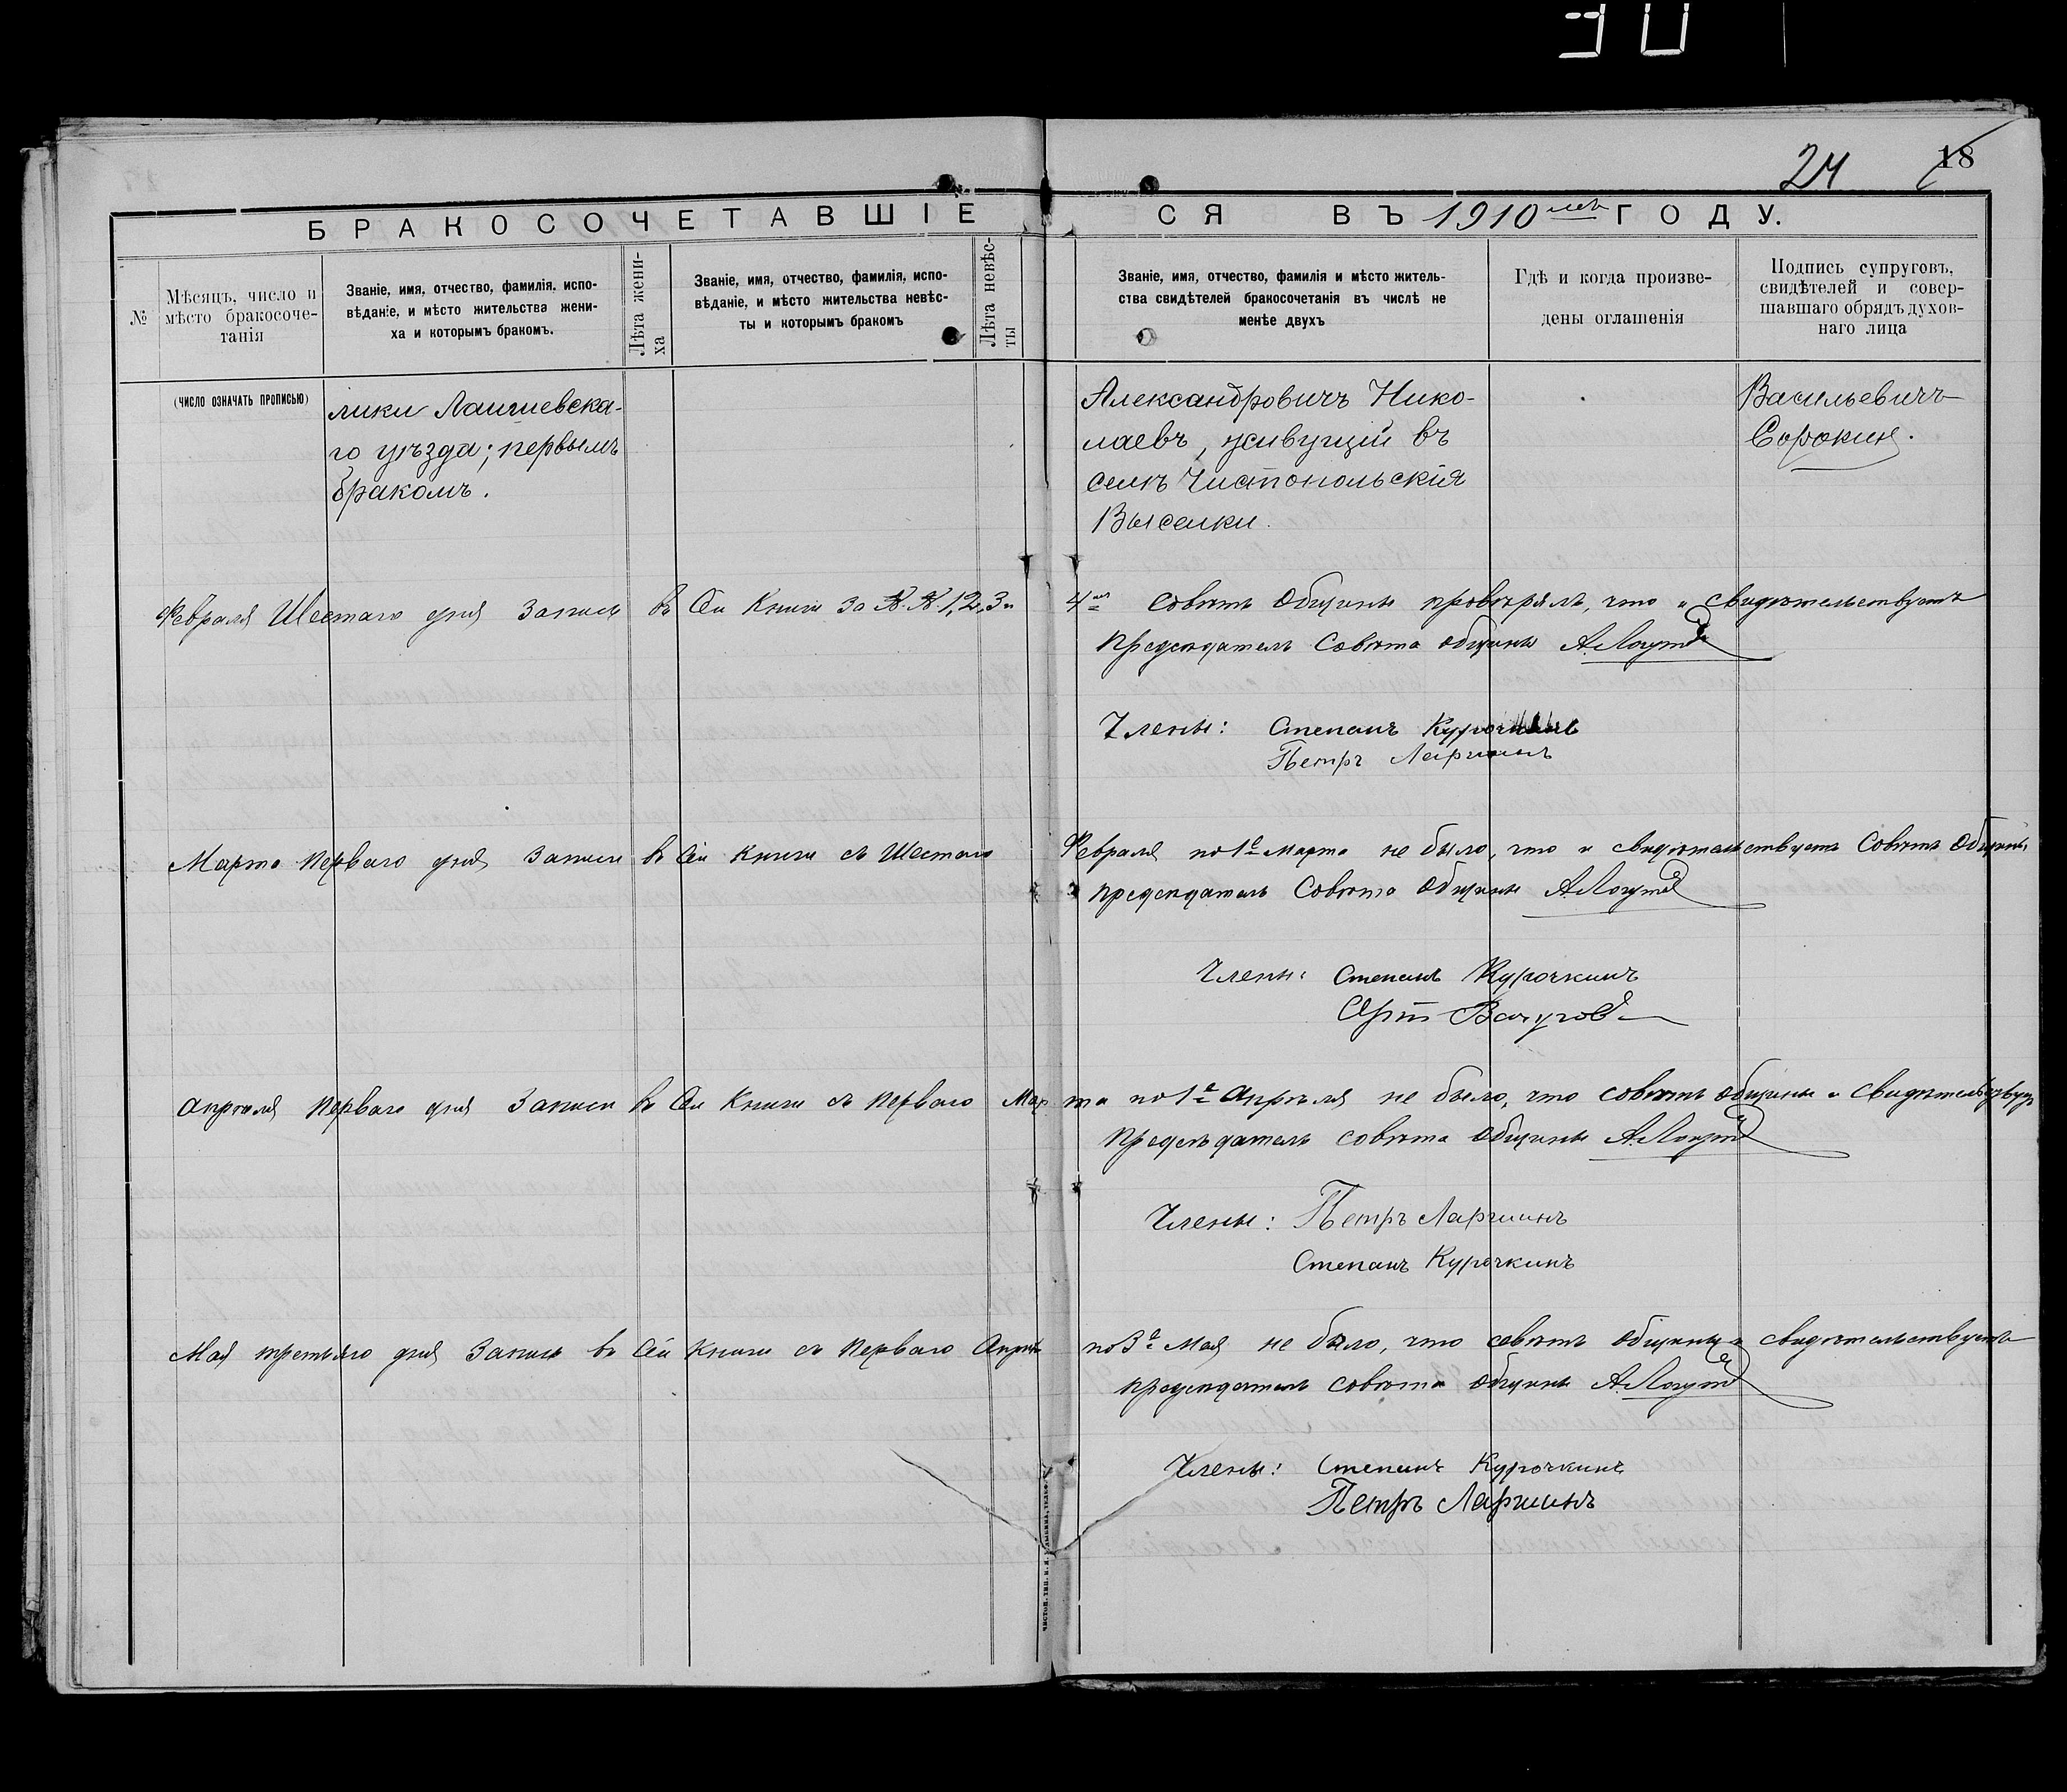 30
24 18
БРАКОСОЧЕТАВШІЕСЯ ВЪ 1910 мъ ГОДУ.
№
Мѣсяцъ, число и
мѣсто бракосоче-
танія
Званіе, имя, отчество, фамилія, испо-
вѣданіе, и мѣсто жительства жени-
ха и которымъ бракомъ.
Лѣта жени-
ха
Званіе, имя, отчество, фамилія, испо-
вѣданіе, и мѣсто жительства невѣс-
ты и которымъ бракомъ
Лѣта невѣс-
ты
Званіе, имя, отчество, фамилія и мѣсто житель-
ства свидѣтелей бракосочетанія въ числѣ не
менѣе двухъ
Гдѣ и когда произве-
дены оглашенія
Подпись супруговъ,
свидѣтелей и совер-
шавшаго обрядъ духов-
наго лица
(ЧИСЛО ОЗНАЧАТЬ ПРОПИСЬЮ)
лики Лаишевска-
го уѣзда; первымъ
бракомъ.
Александровичъ Нико-
лаевъ, живущій въ
селѣ Чистопольскія
Выселки.
Васильевичъ
Сорокинъ.
Февраля Шестаго дня Записи въ Сей Книги за №.№ 1, 2, 3 и 4 й Совѣтъ Общины провѣрялъ, что и свидѣтельствуетъ
Предсѣдатель Совѣта Общины
Члены: Степанъ Курочкинъ
Петръ Ларшинъ
Марта Перваго дня Записи въ Сей Книги съ Шестаго Февраля по 1е Марта не было, что и свидѣтельствуетъ Совѣтъ Общины
Предсѣдатель Совѣта Общины
Члены: Степанъ Курочкинъ
Апрѣля Перваго дня Записи въ Сей Книги съ Перваго Марта по 1е Апрѣля не было, что совѣтъ общины и Свидѣтельствуетъ
Предсѣдатель совѣта Общины
Члены: Петръ Ларшинъ
Степанъ Курочкинъ
Мая третьяго дня Записи въ Сей Книги съ Перваго Апрѣля по 3е Мая не было, что совѣтъ общины и свидѣтельствуетъ
Предсѣдатель совѣта общины
Члены: Степанъ Курочкинъ
Петръ Ларшинъ